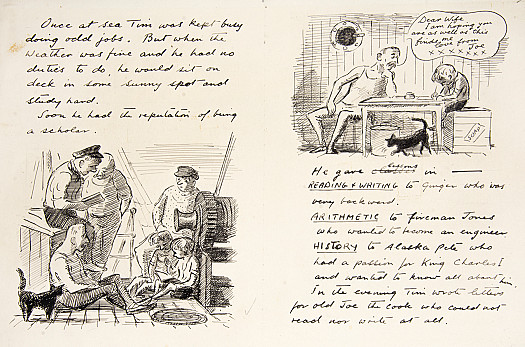 Once at sea Tim was kept busy
doing odd jobs. But when the
weather was fine and he had no
duties to do, he would sit on
deck in some sunny spot and
study hard.
Soon he had the reputation of being
a scholar.
Dear Wife
I am hoping you
are as well as this
finds me
love from
Joe
x x x x x x
He gave lessons in —
READING & WRITING to Ginger who was
very backward.
ARITHMETIC to fireman Jones
who wanted to become an engineer
HISTORY to Alaska Pete who
had a passion for King Charles I
and wanted to know all about him.
In the evening Tim wrote letters
for old Joe the cook who could not
read nor write at all.